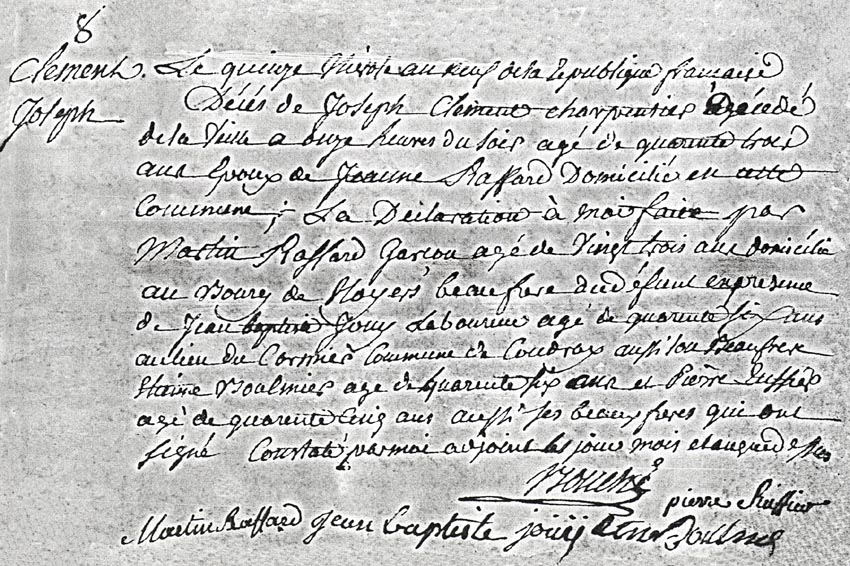 8
Clement Joseph
Le quinze Nivose an neuf de la Republique francaise
Décés de Joseph Clement charpentier Décédé
de la Veille a onze heures du soir agé de quarente trois
ans Epoux de Jeanne Raffard Domicilié en cette
Commune ; La Déclaration à moi faite par
Martin Raffard garcon agé de Vingt trois ans domicilié
au Bourg de Noyers beaufrere du défunt en presence
de Jean baptiste Jouy Laboureur agé de quarente six ans
au lieu du Cormier Commune de Couddes aussi son Beaufrere
Etienne Boulmier age de quarente six ans et Pierre Ruffier
agé de quarente cinq ans aussi ses beaux freres qui ont
signé Constaté par moi adjoint les jour mois et an que dessus
pierre Ruffier
Martin Raffard Jean baptiste joüÿ